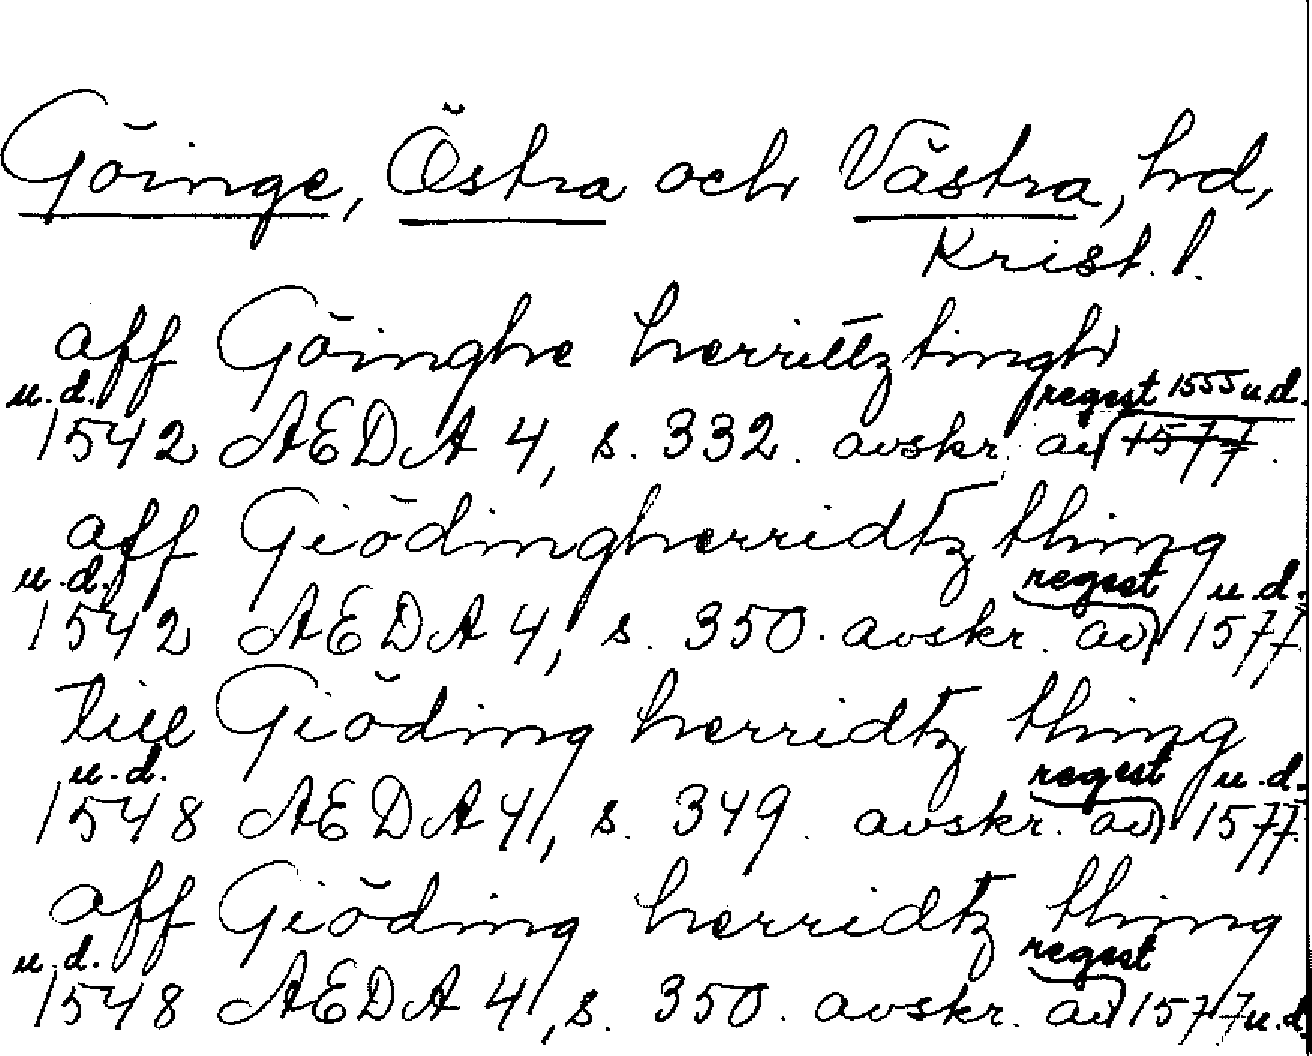 Göinge, Östra och Västra, hd,
Krist. l.
aff Göinghe herrittz tingh
u.d. regest 1555 u.d.
1542 AEDA 4, s. 332. avskr. av 1577.
aff Giödingherridtz thing
u.d. regest u.d.
1542 AEDA 4, s. 350. avskr. av 1577.
till Giöding herridtz thing
u.d. regest u.d.
1548 AEDA 4, s. 349. avskr. av 1577.
aff Giöding herridtz thing
u.d. regest
1548 AEDA 4, s. 350. avskr. av 1577 u.d.